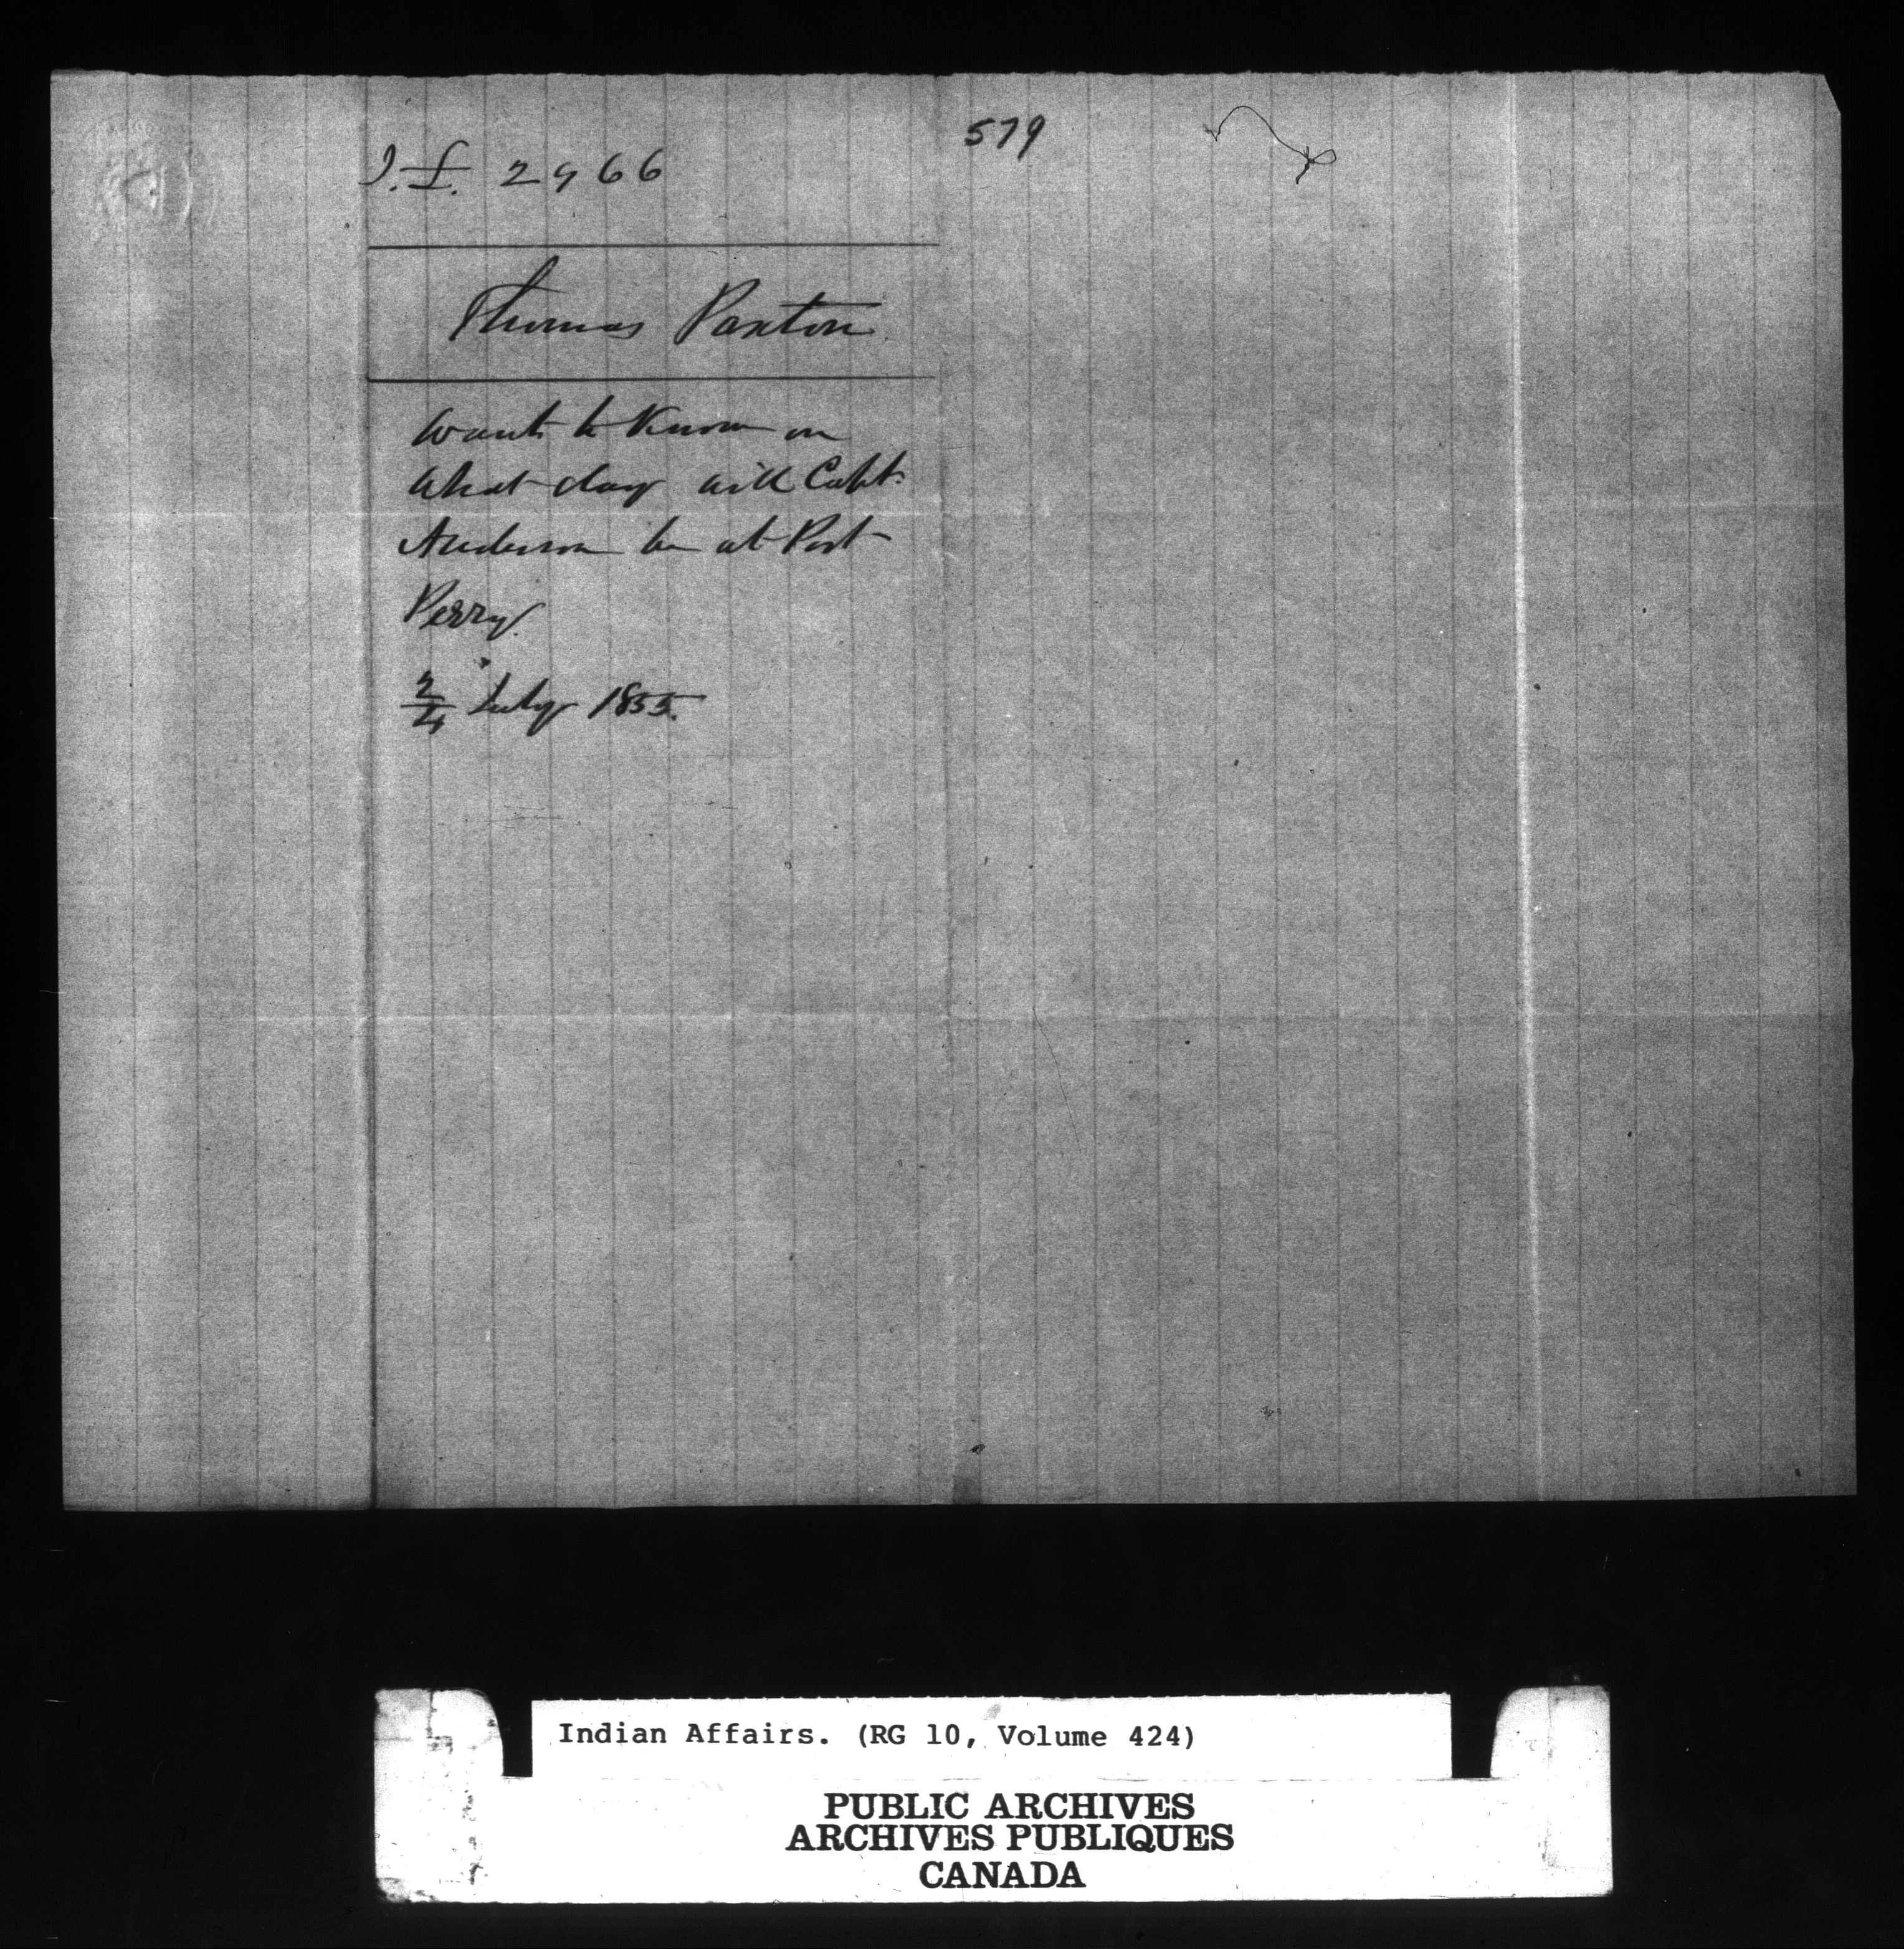 579
J.L. 2966
Thomas Paxton
Wants to Know on
What day will Capt.
Anderson be at Port
Perry.
2/4 July 1855.
Indian Affairs. (RG 10, Volume 424)
PUBLIC ARCHIVES
ARCHIVES PUBLIQUES
CANADA